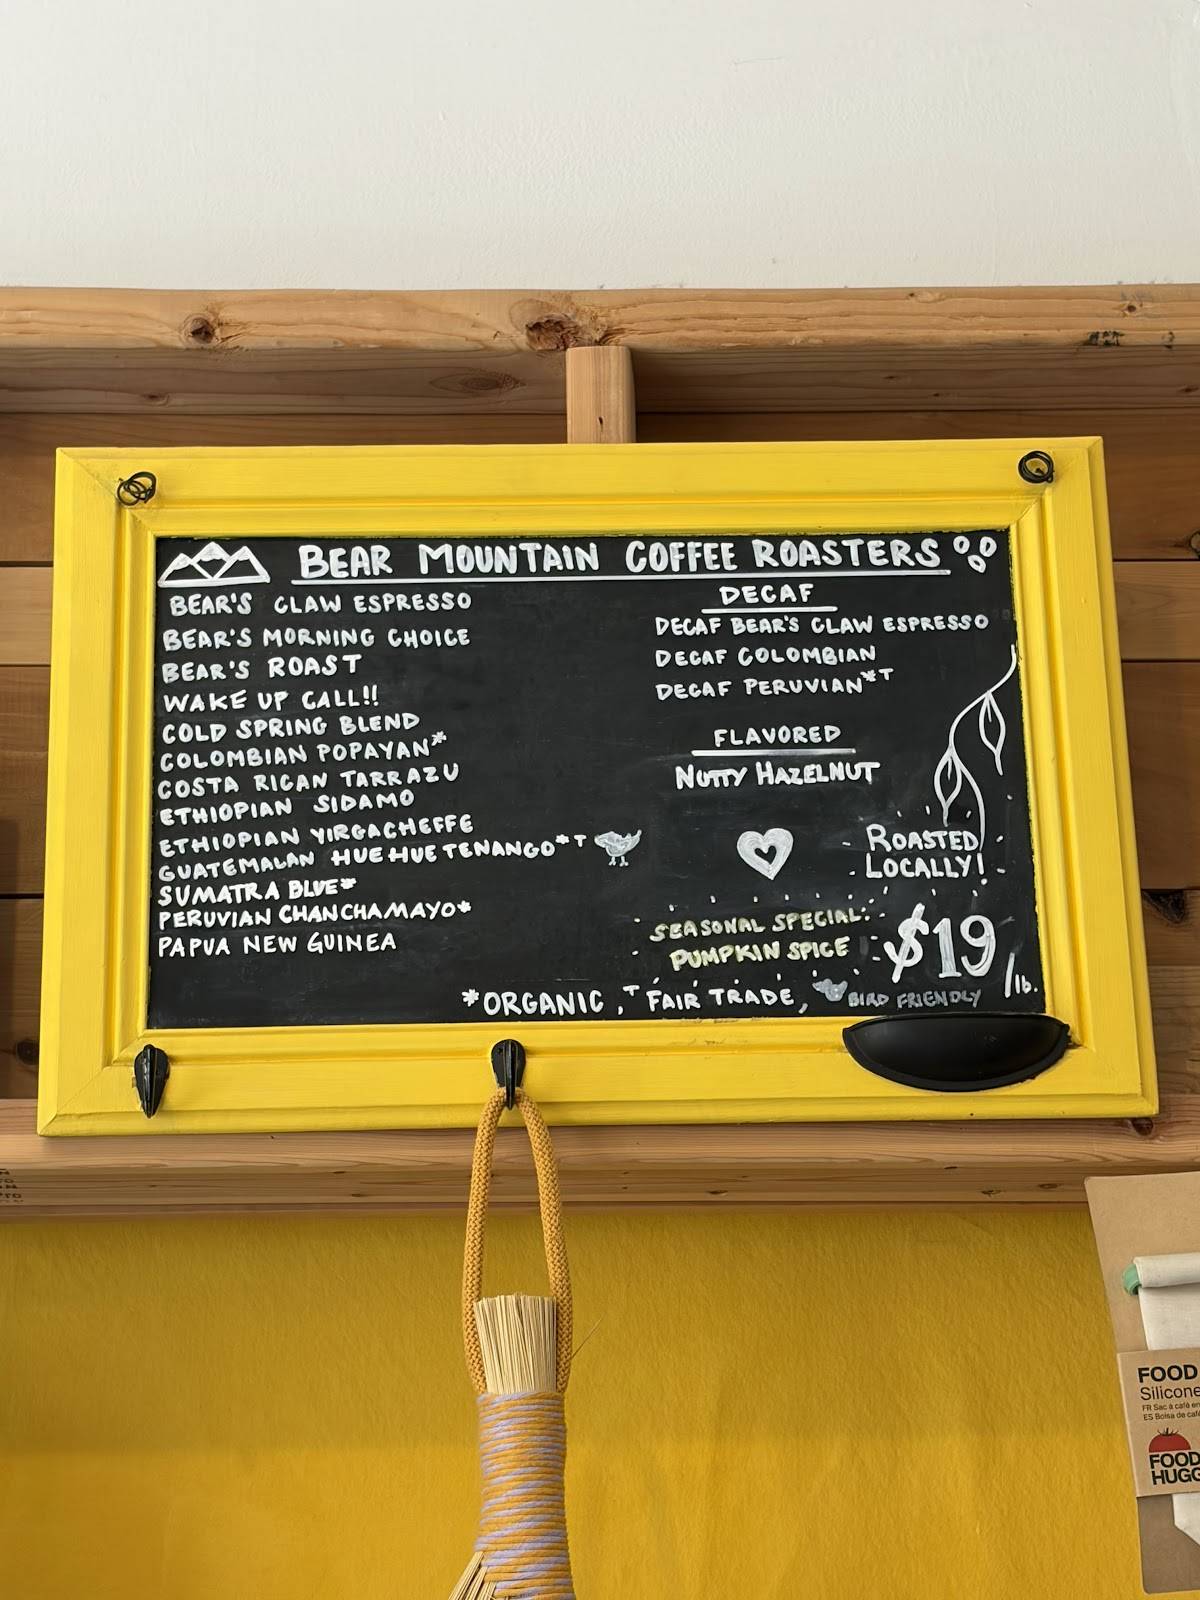 BEAR MOUNTAIN COFFEE ROASTERS
BEAR'S CLAW ESPRESSO
BEAR'S MORNING CHOICE
BEAR'S ROAST
WAKE UP CALL!!
COLD SPRING BLEND
COLOMBIAN POPAYAN*
COSTA RICAN TARRAZU
ETHIOPIAN SIDAMO
ETHIOPIAN YIRGACHEFFE
GUATEMALAN HUEHUETENANGO*T
SUMATRA BLUE*
PERUVIAN CHANCHAMAYO*
PAPUA NEW GUINEA
DECAF
DECAF BEAR'S CLAW ESPRESSO
DECAF COLOMBIAN
DECAF PERUVIAN*T
FLAVORED
NUTTY HAZELNUT
ROASTED
LOCALLY!
SEASONAL SPECIAL:
PUMPKIN SPICE
$19 /lb.
*ORGANIC, T FAIR TRADE, BIRD FRIENDLY
FOOD
Silicone
FR Sac à café en
ES Bolsa de café
FOOD
HUGG